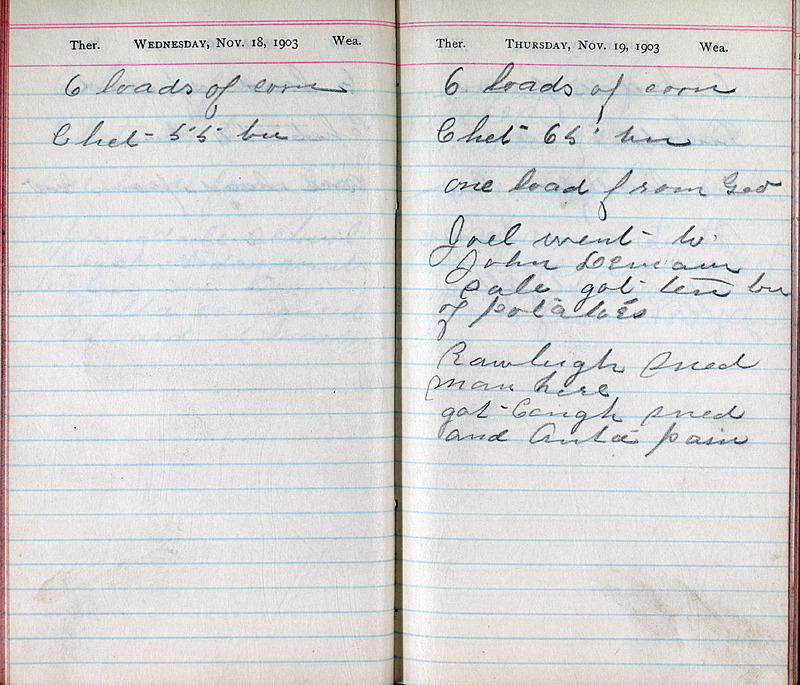 Ther. WEDNESDAY, NOV. 18, 1903 Wea.
6 loads of corn
Chet 55 bu
Ther. THURSDAY, NOV. 19, 1903 Wea.
6 loads of corn
Chet 65 bu
one load from Geo
Joel went to
John Demam
sale got ten bu
of potatoes
Rawleigh med
man here
got Cough med
and Anta pain